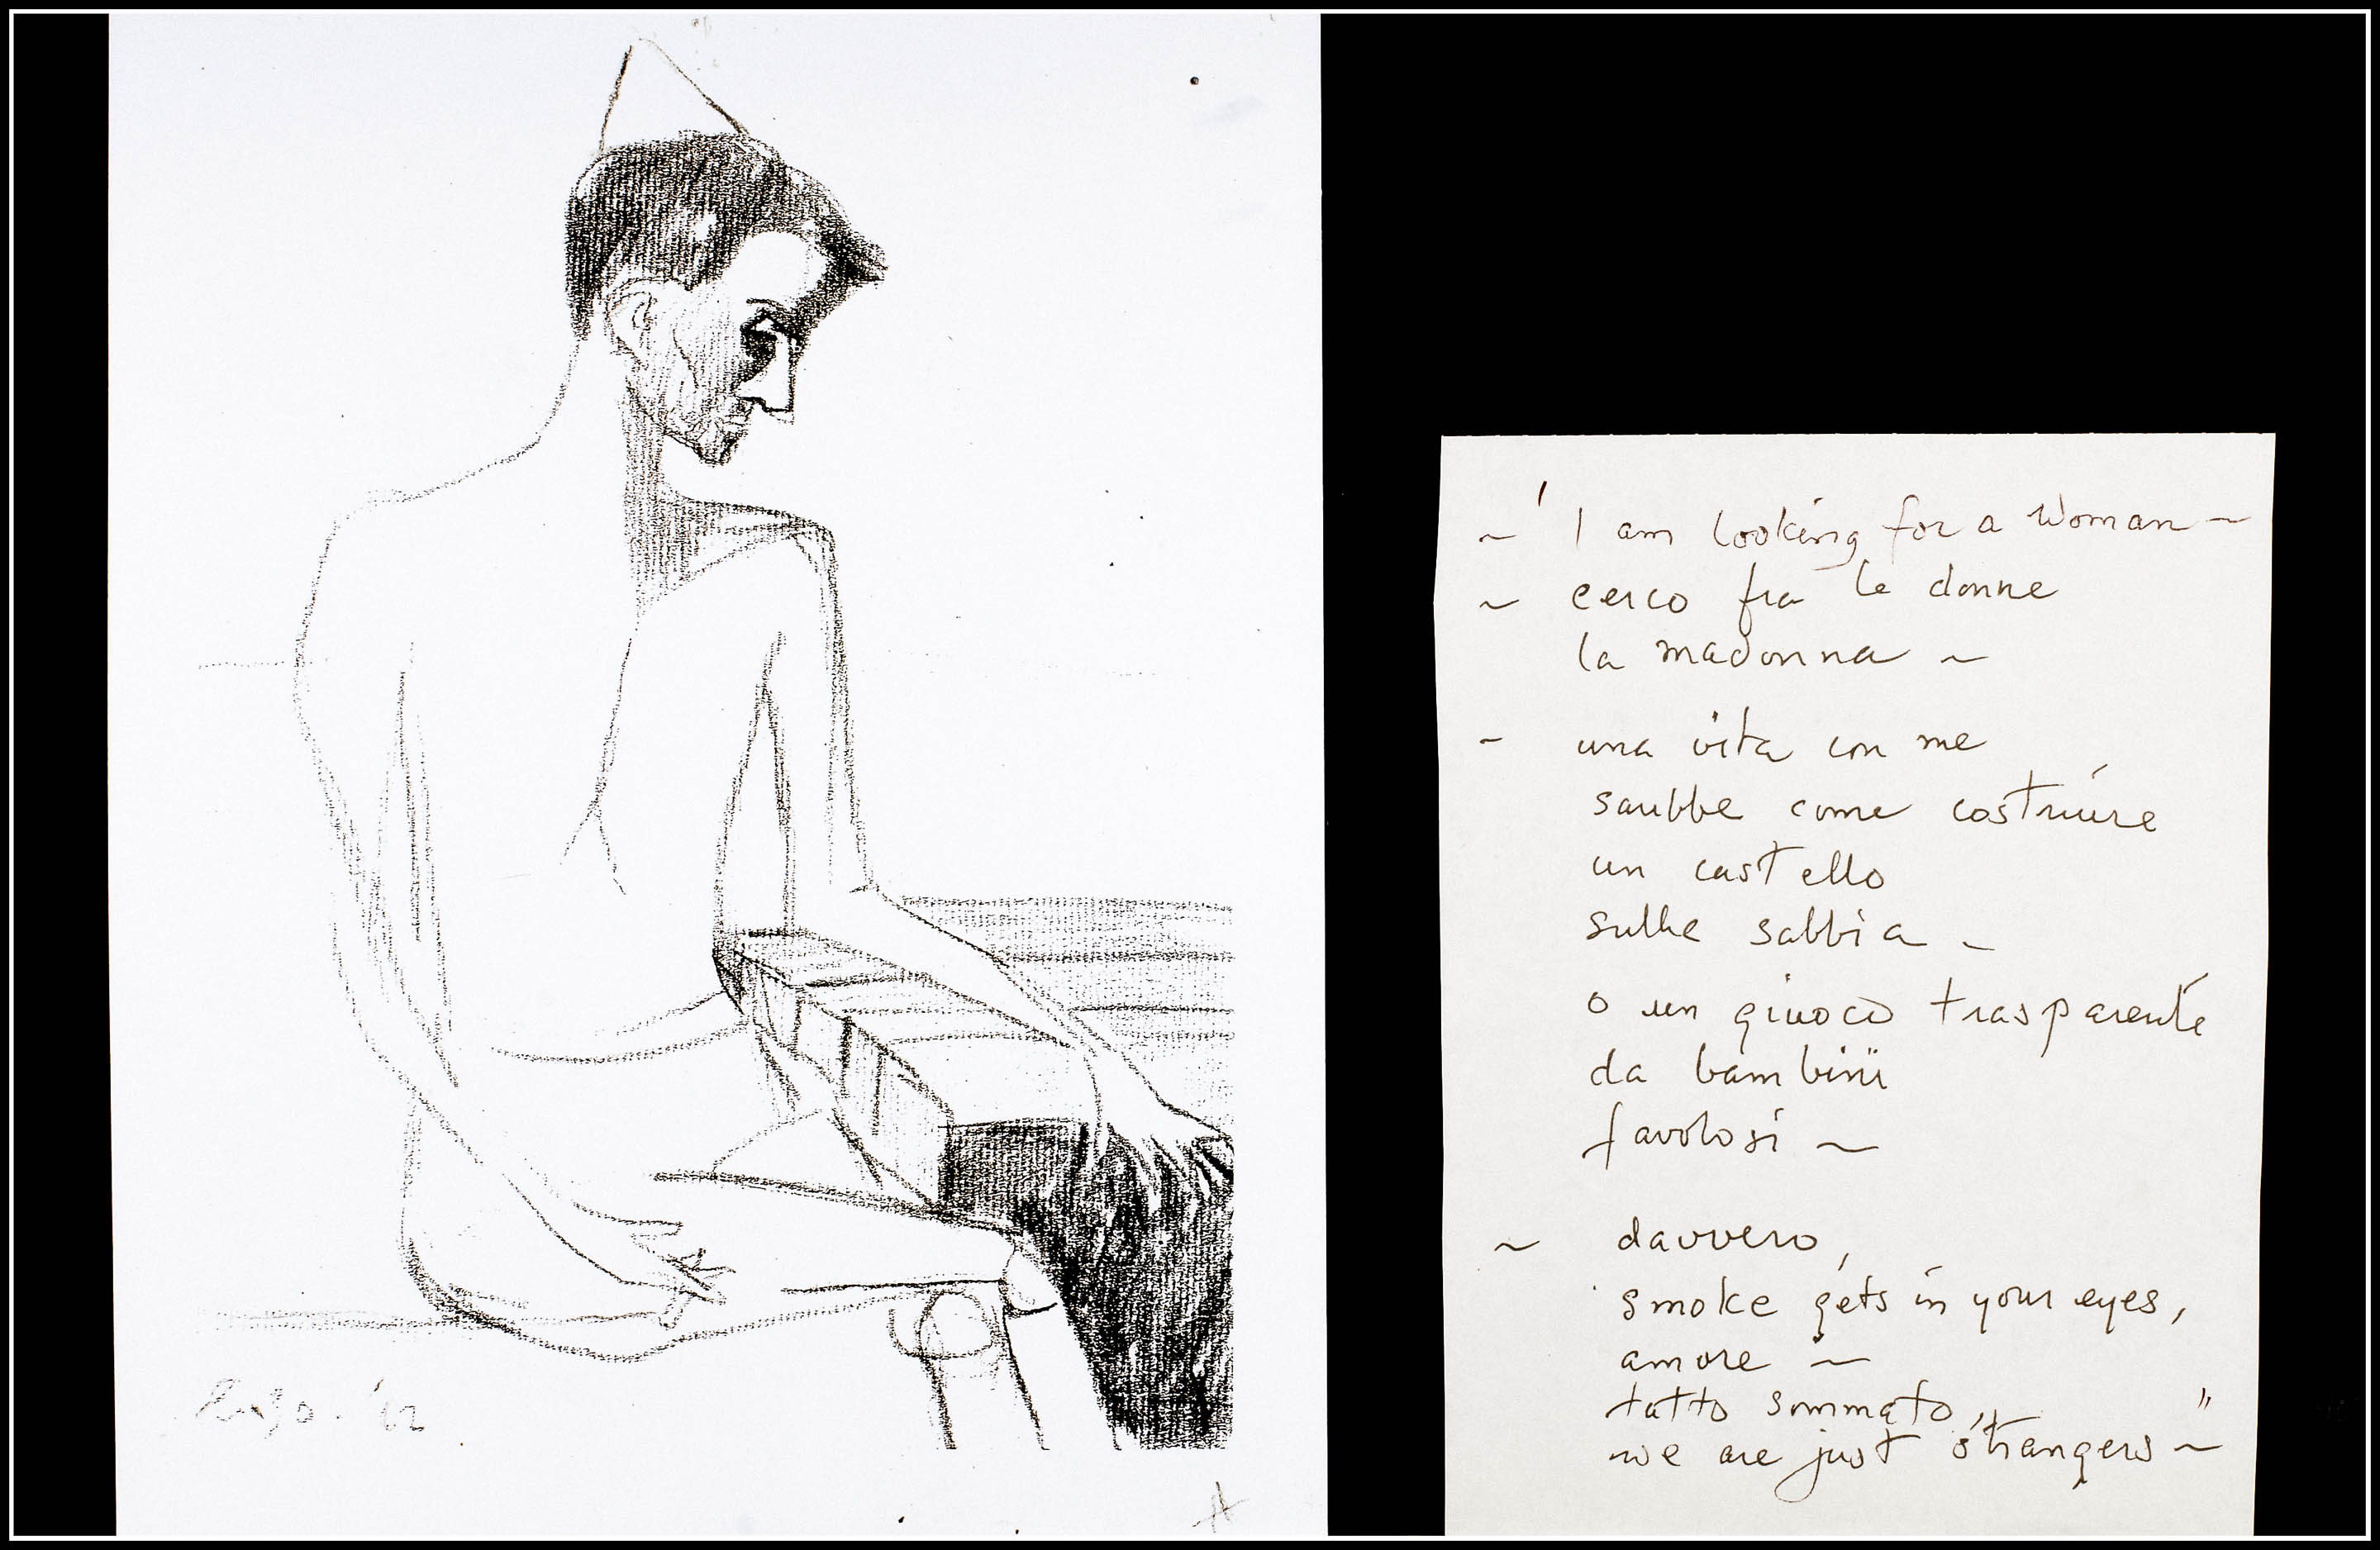 ~ ' I am looking for a woman ~
~ cerco fra le donne
la madonna ~
- una vita con me
sarebbe come costruire
un castello
sulle sabbia -
o un giuoco trasparente
da bambini
favolosi ~
~ davvero,
smoke gets in your eyes,
amore ~
tutto sommato, "
we are just strangers ~
'62